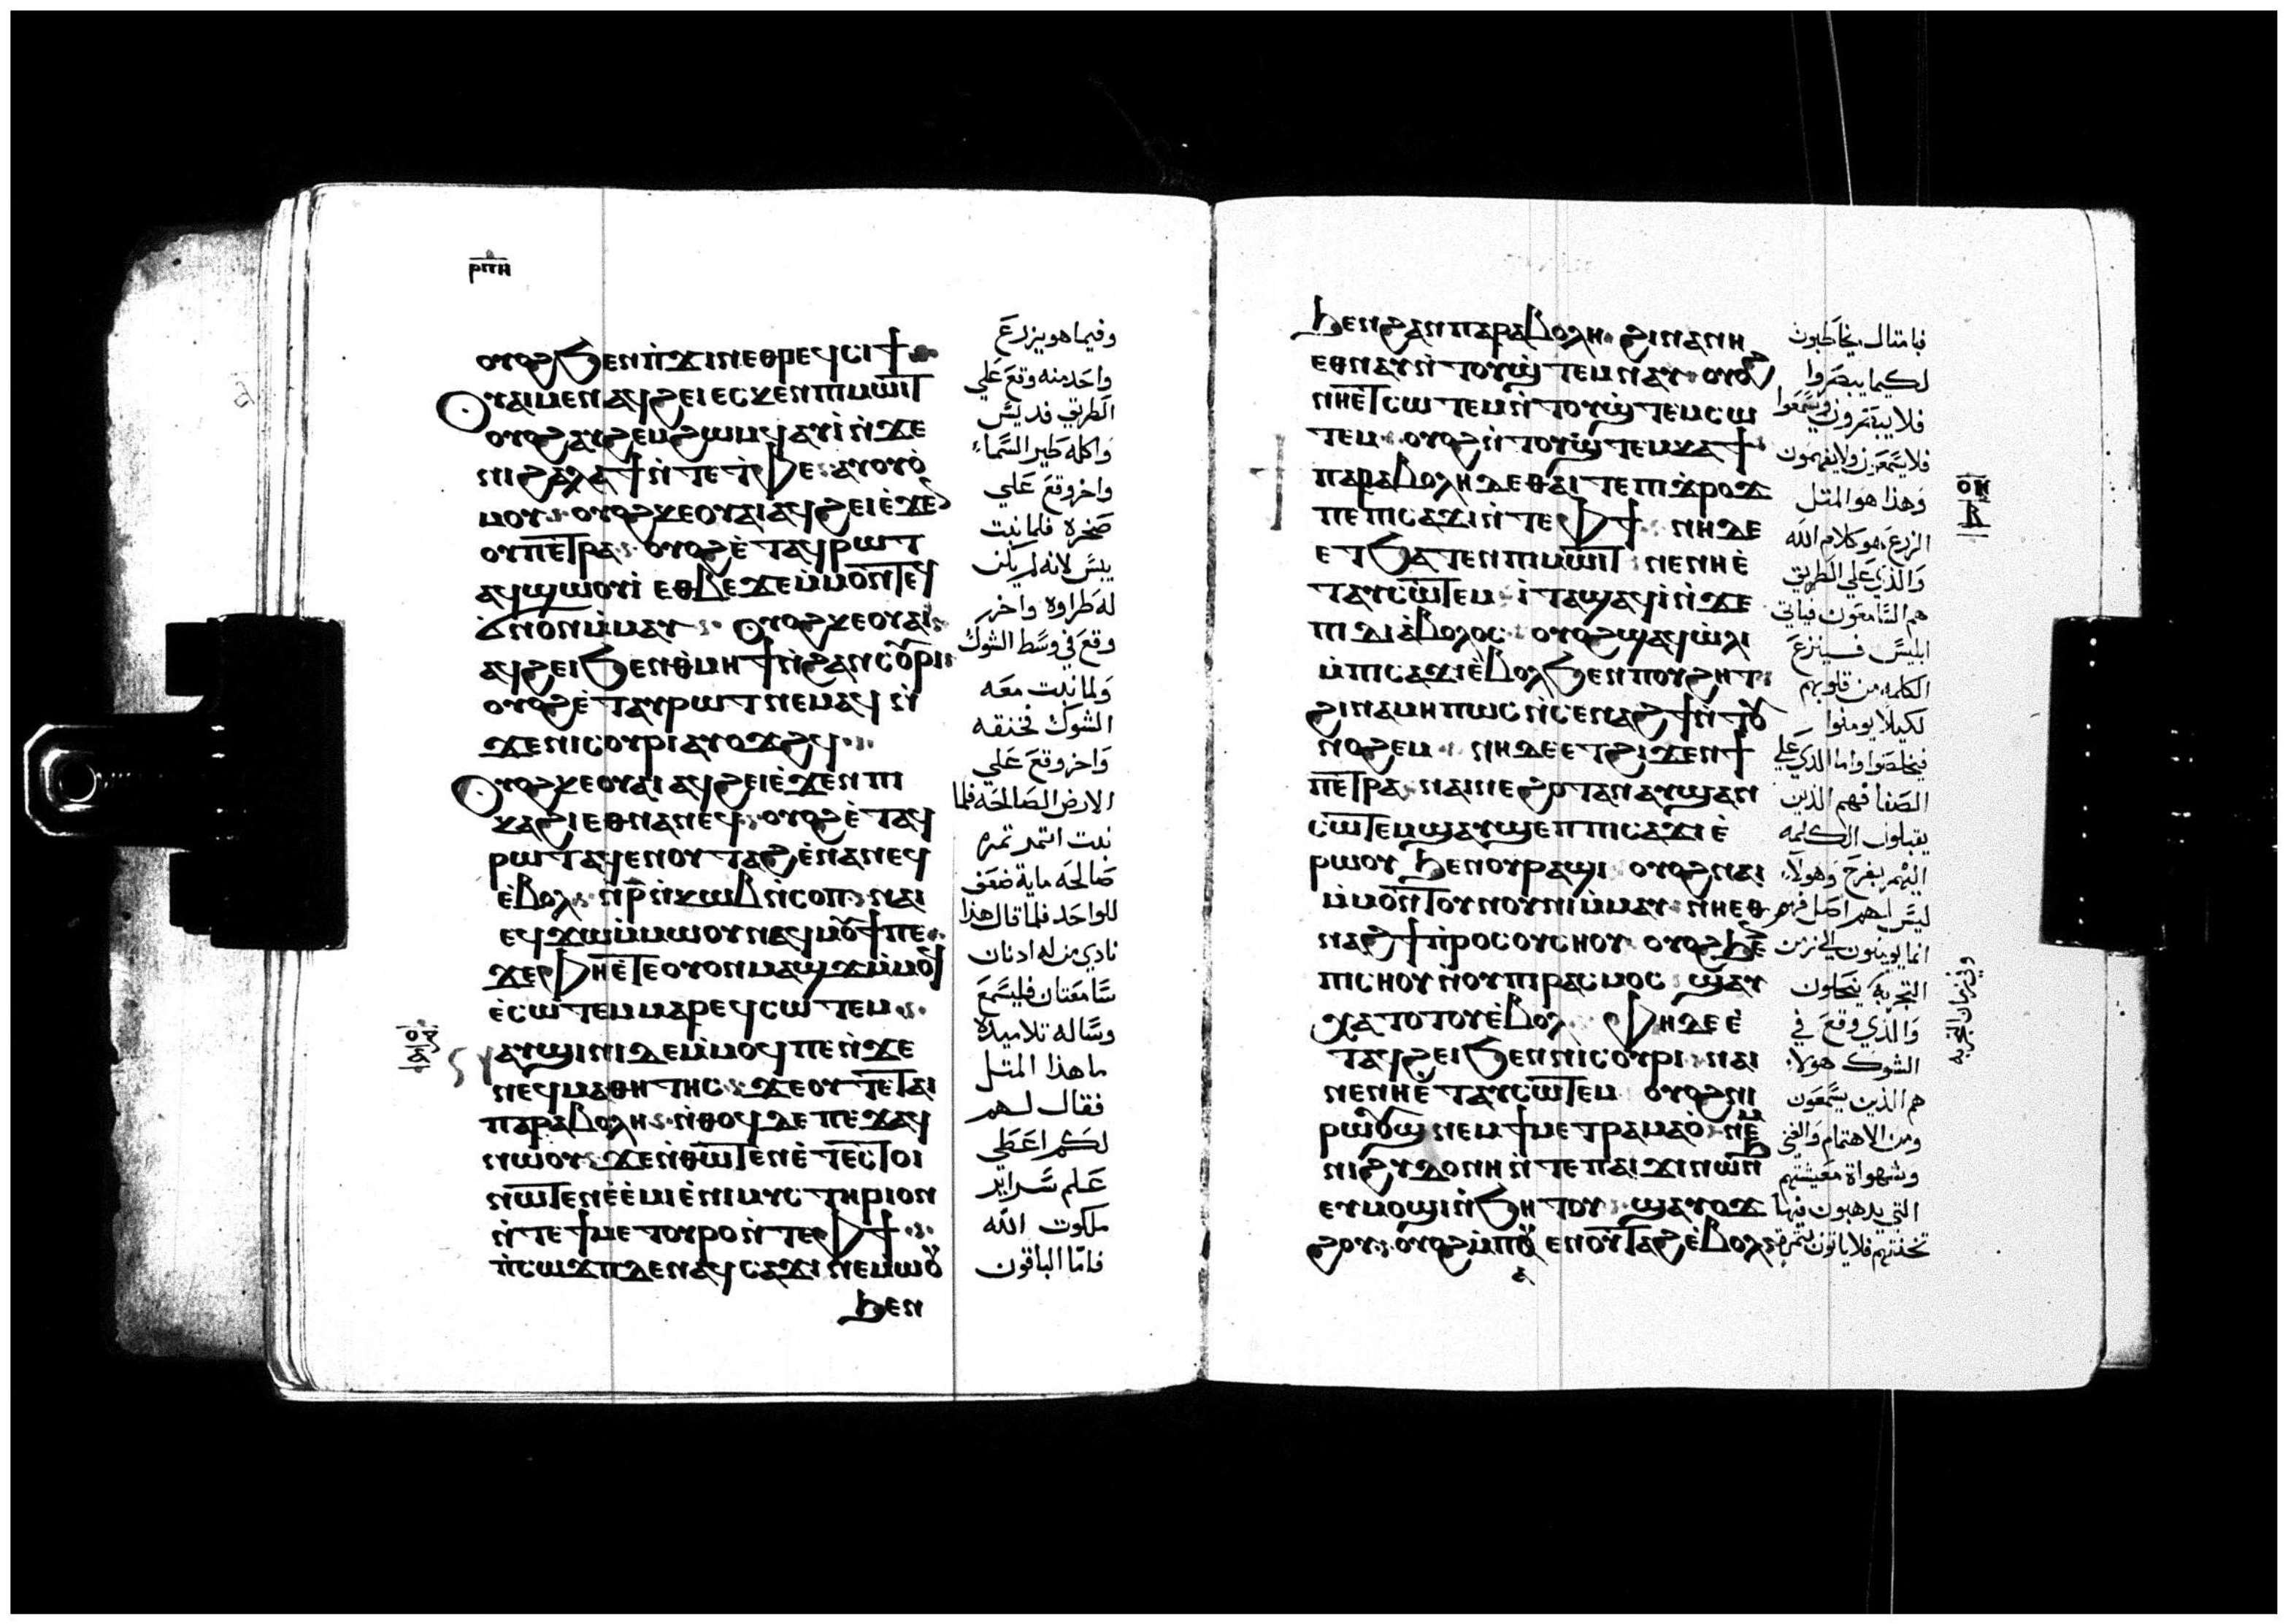 ⲣⲡⲏ
ⲟⲩⲟϩ ϧⲉⲛⲡ̀ϫⲓⲛⲉⲑⲣⲉϥⲥⲓϯ
ⲟⲩⲁⲓⲙⲉⲛ ⲁϥϩⲉⲓ ⲉⲥⲕⲉⲛⲡⲓⲙⲱⲓⲧ
ⲟⲩⲟϩ ⲁⲩϩⲉⲙϩⲱⲙϥ ⲁⲩⲓ̀ ⲛ̀ϫⲉ
ⲛⲓϩⲁⲗⲁϯ ⲛ̀ⲧⲉⲧ̀ⲫⲉ ⲁⲩⲟⲩⲟ̀
ⲙⲟⲩ ⲟⲩⲟϩ ⲕⲉⲟⲩⲁⲓ ⲁϥϩⲉⲓ ⲉ̀ϫⲉⲛ
ⲟⲩⲡⲉⲧⲣⲁ ⲟⲩⲟϩ ⲉ̀ⲧⲁϥⲣⲱⲧ
ⲁϥϣⲱⲟⲩⲓ̀ ⲉⲑⲃⲉϫⲉ ⲙ̀ⲙⲟⲛⲧⲉϥ
ⲁ̀ⲛⲟⲛ ⲙ̀ⲙⲁⲩ ⲟⲩⲟϩ ⲕⲉⲟⲩⲁⲓ
ⲁϥϩⲉⲓ ϧⲉⲛⲑ̀ⲙⲏϯ ⲛ̀ϩⲁⲛⲥⲟⲩⲣⲓ
ⲟⲩⲟϩ ⲉ̀ⲧⲁⲩⲣⲱⲧ ⲛⲉⲙⲁϥ ⲛ̀
ϫⲉⲛⲓⲥⲟⲩⲣⲓ ⲁⲩⲟϫϩϥ
ⲟⲩⲟϩ ⲕⲉⲟⲩⲁⲓ ⲁϥϩⲉⲓ ⲉ̀ϫⲉⲛⲡⲓ
ⲕⲁϩⲓ ⲉⲑⲛⲁⲛⲉϥ ⲟⲩⲟϩ ⲉ̀ⲧⲁϥ
ⲣⲱⲧ ⲁϥⲉⲛⲟⲩⲧⲁϩ ⲉ̀ⲛⲁⲛⲉϥ
ⲉ̀ⲃⲟⲗ ⲛ̀ⲣ̅ ⲛ̀ⲕⲱⲃ ⲛ̀ⲥⲟⲡ ⲛⲁⲓ
ⲉϥϫⲱ ⲙ̀ⲙⲱⲟⲩ ⲛⲁϥⲙⲟⲩϯ ⲡⲉ
ϫⲉⲫⲏⲉ̀ⲧⲉⲟⲩⲟⲛ ⲙⲁϣϫ ⲙ̀ⲙⲟϥ
ⲉ̀ⲥⲱⲧⲉⲙ ⲙⲁⲣⲉϥⲥⲱⲧⲉⲙ
ⲁⲩϣⲓⲛⲓ ⲇⲉ ⲙ̀ⲙⲟϥ ⲡⲉ ⲛ̀ϫⲉ
ⲛⲉϥⲙⲁⲑⲏⲧⲏⲥ ϫⲉⲟⲩ ⲧⲉ ⲧⲁⲓ
ⲡⲁⲣⲁⲃⲟⲗⲏ ⲛ̀ⲑⲟϥ ⲇⲉ ⲡⲉϫⲁϥ
ⲛⲱⲟⲩ ϫⲉⲛ̀ⲑⲱⲧⲉⲛ ⲉ̀ⲧⲉⲥⲧⲟⲓ
ⲛⲱⲧⲉⲛ ⲉⲉ̀ⲙⲓ ⲉ̀ⲛⲓⲙⲩⲥⲧⲏⲣⲓⲟⲛ
ⲛ̀ⲧⲉϯⲙⲉⲧⲟⲩⲣⲟ ⲛ̀ⲧⲉⲫϯ
ⲡ̀ⲥⲱϫⲡ ⲇⲉ ⲛⲁϥⲥⲁϫⲓ ⲛⲉⲙⲱⲟⲩ
ϧⲉⲛ
وفيما هو يزرع
واحد منه وقع علي
الطريق فديس
واكله طير السماء
واخر وقع علي
صخره فلما نبت
يبس لانه لم يكن
له طراوة واخر
وقع في وسط الشوك
ولما نبت معه
الشوك فخنقه
واخر وقع علي
الارض الصالحه فلما
نبت اثمر ثمره
صالحه ماية ضعف
للواحد فلما قال هذا
نادي من له ادنان
سامعتان فليسمع
وساله تلاميده
ما هذا المثل
فقال لهم
لكم اعطي
علم سراير
ملكوت الله
فاما الباقون
ϧⲉⲛϩⲁⲛⲡⲁⲣⲁⲃⲟⲗⲏ ϩⲓⲛⲁ ⲛⲏ
ⲉⲑⲛⲁⲩ ⲛ̀ⲧⲟⲩϣ̀ⲧⲉⲙⲛⲁⲩ ⲟⲩⲟϩ
ⲛⲏⲉⲧⲥⲱⲧⲉⲙ ⲛ̀ⲧⲟⲩϣ̀ⲧⲉⲙⲥⲱ
ⲧⲉⲙ ⲟⲩⲟϩ ⲛ̀ⲧⲟⲩϣ̀ⲧⲉⲙⲕⲁϯ
ⲡⲁⲣⲁⲃⲟⲗⲏ ⲇⲉ ⲑⲁⲓ ⲧⲉ ⲡⲓϫⲣⲟϫ
ⲡⲉ ⲡⲓⲥⲁϫⲓ ⲛ̀ⲧⲉⲫϯ ⲛⲏ ⲇⲉ
ⲉⲧϧⲁⲧⲉⲛⲡⲓⲙⲱⲓⲧ ⲛⲉ ⲛⲏⲉ̀
ⲧⲁⲩⲥⲱⲧⲉⲙ ⲓⲧⲁ ϣⲁϥⲓ̀ ⲛ̀ϫⲉ
ⲡⲓⲇⲓⲁ̀ⲃⲟⲗⲟⲥ ⲟⲩⲟϩ ϣⲁϥⲱ̀ⲗⲓ
ⲙ̀ⲡⲓⲥⲁϫⲓ ⲉ̀ⲃⲟⲗϧⲉⲛⲡⲟⲩϩⲏⲧ
ϩⲓⲛⲁ ⲙⲏⲡⲱⲥ ⲛ̀ⲥⲉⲛⲁϩϯ ⲛ̀ⲧⲟⲩ
ⲛⲟϩⲉⲙ ⲛⲏ ⲇⲉ ⲉⲧϩⲓϫⲉⲛϯ
ⲡⲉⲧⲣⲁ ⲛⲁⲓ ⲛⲉ ϩⲟⲧⲁⲛ ⲁⲩϣⲁⲛ
ⲥⲱⲧⲉⲙ ϣⲁⲩϣⲉⲡ ⲡⲓⲥⲁϫⲓ ⲉ̀
ⲣⲱⲟⲩ ϧⲉⲛⲟⲩⲣⲁϣⲓ ⲟⲩⲟϩ ⲛⲁⲓ
ⲙ̀ⲙⲟⲛⲧⲟⲩ ⲛⲟⲩⲛⲓ ⲙ̀ⲙⲁⲩ ⲛⲏⲉⲑ
ⲛⲁϩϯ ⲡ̀ⲣⲟⲥ ⲟⲩⲥⲏⲟⲩ ⲟⲩⲟϩ ϧⲉⲛ
ⲡⲓⲥⲏⲟⲩ ⲛ̀ⲟⲩⲡⲓⲣⲁⲥⲙⲟⲥ ϣⲁⲩ
ⲭⲁⲧⲟⲧⲟⲩ ⲉ̀ⲃⲟⲗ ⲫⲏ ⲇⲉ ⲉ̀
ⲧⲁϥϩⲉⲓ ϧⲉⲛⲛⲓⲥⲟⲩⲣⲓ ⲛⲁⲓ
ⲛⲉ ⲛⲏⲉ̀ⲧⲁⲩⲥⲱⲧⲉⲙ ⲟⲩⲟϩ ⲛⲓ
ⲣⲱⲟⲩϣ ⲛⲉⲙ ϯⲙⲉⲧⲣⲁⲙⲁⲟ̀ ⲛⲉⲙ
ⲛⲓϩⲩⲇⲟⲛⲏ ⲛ̀ⲧⲉⲡⲁⲓϫⲓⲛⲱⲛϧ
ⲉⲩⲙⲟϣⲓ ⲛ̀ϧⲏⲧⲟⲩ ϣⲁⲩⲟϫ
ϩⲟⲩ ⲟⲩⲟϩ ⲙ̀ⲡⲟⲩⲉⲛⲟⲩⲧⲁϩ ⲉ̀ⲃⲟⲗ
فبامثال يخاطبون
لكيما يبصروا
فلا يبصرون ويسمعوا
فلا يسمعون ولا يفهمون
وهذا هو المثل
الزرع هو كلام الله
والذي علي الطريق
هم السامعون فياتي
ابليس فينزع
الكلمه من قلوبهم
لكيلا يومنوا
فيخلصوا واما الذي علي
الصفا فهم الذين
يقبلون الكلمه
اليهم بفرح وهولاء
ليس لهم اصل
انما يومنون الي زمن
وفي زمان التجربه
التجربه
والذي وقع في
الشوك هولاء
هم الذين يسمعون
ومن الاهتمام والغني
وشهواة معيشتهم
التي يدهبون فيها
تخنقهم فلا ياتون بثمره